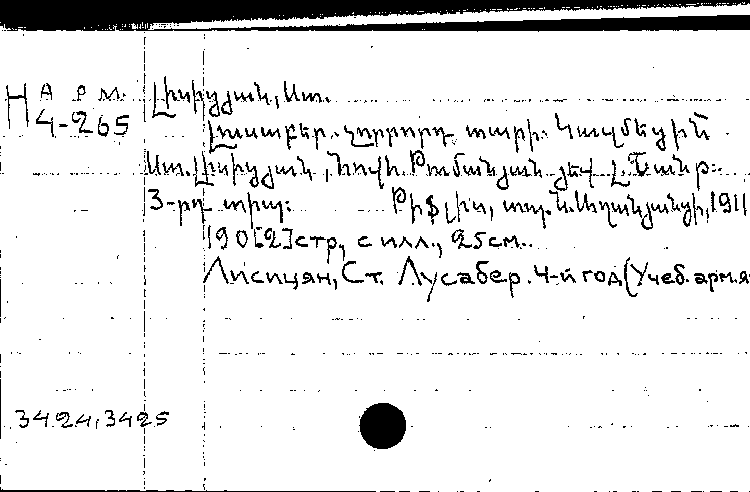 Н А Р М.
4-265
Լիսիցյան, Ստ.
Լուսաբեր. չորրորդ տարի. Կազմեցին
Ստ. Լիսիցյան, Հովհ. Թումանյան յեվ Լ. Շանթ:
3-րդ տիպ: Թիֆլիս, տպ. Ն. Աղանյանցի, 1911
190[2]стр, с илл., 25см.
Лисицян, Ст. Лусабер. 4-й год (Учеб. арм.я
3424, 3425